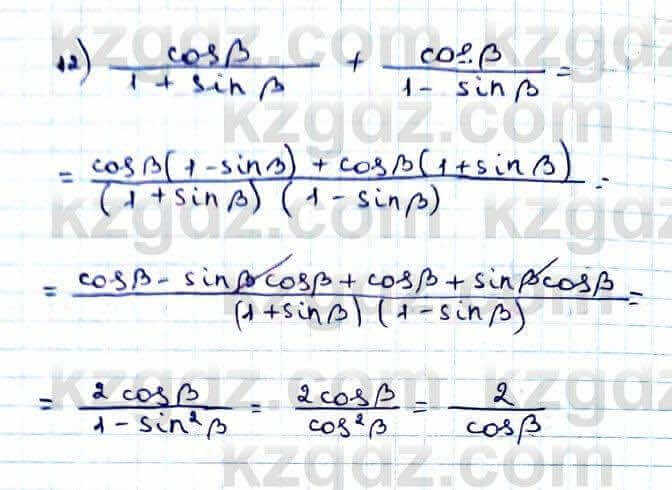 12) cosβ / (1 + sinβ) + cosβ / (1 - sinβ) =
= (cosβ(1-sinβ) + cosβ(1+sinβ)) / ((1+sinβ)(1-sinβ)) =
= (cosβ - sinβcosβ + cosβ + sinβcosβ) / ((1+sinβ)(1-sinβ)) =
= 2cosβ / (1-sin²β) = 2cosβ / cos²β = 2 / cosβ
kzgdz.com kzgdz.com
kzgdz.com
kzgdz.com
kzgdz.com
kzgdz.com
kzgdz.com